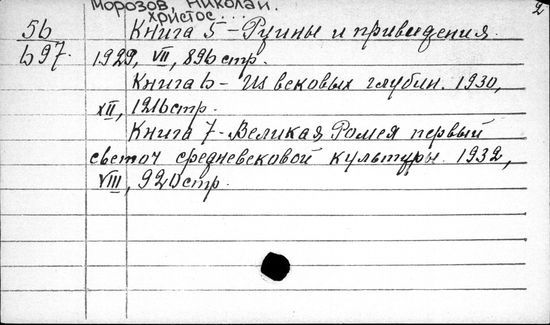 Морозов, Николай.
Христос...
2
56 Книга 5 - Руины и привидения.
b97. 1929, VII, 896 стр.
Книга 6 - Из вековых глубин. 1930,
XII, 1216 стр.
Книга 7 - Великая Ромея первый
светоч средневековой культуры. 1932,
VIII, 920 стр.